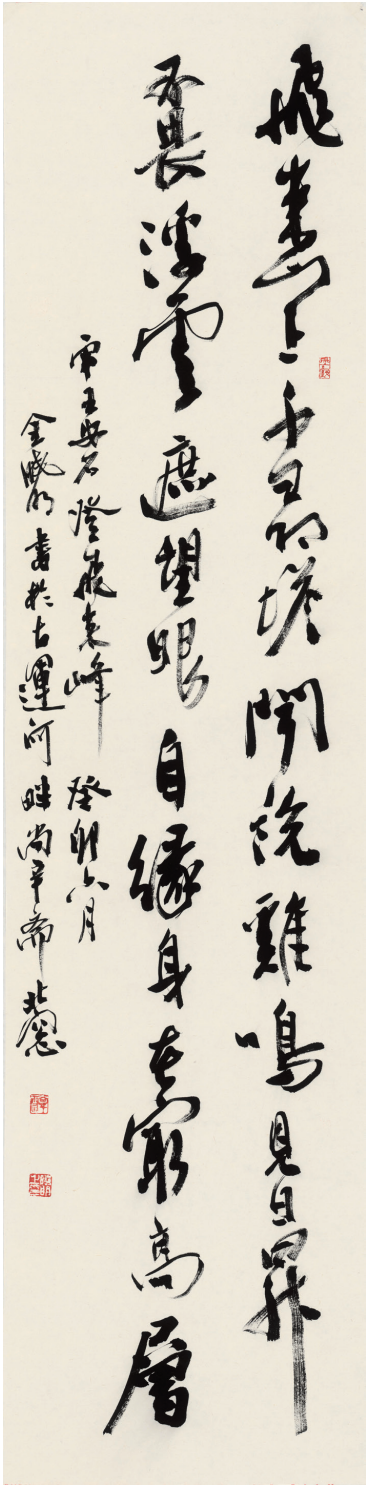 飛來山上千尋塔聞説雞鳴見日昇
不畏浮雲遮望眼自緣身在㝡高層
宋王安石登飛來峰 癸卯六月
金曉明書於古運河畔尚辛齋北窗